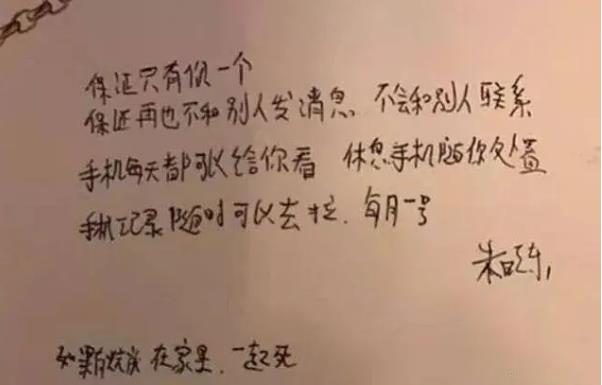 保证只有你一个
保证再也不和别人发消息 不会和别人联系
手机每天都可以给你看 休息手机随你处置
手机记录随时可以去拉.每月一号
朱晓东,
如果 在家里.一起死